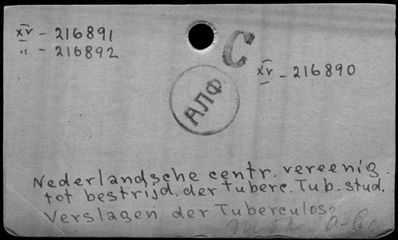 XV - 216891
" - 216892
C
XV - 216890
АЛФ
Nederlandsche centr. vereenig.
tot bestrijd. der tuberc. Tub. stud.
Verslagen der Tuberculos